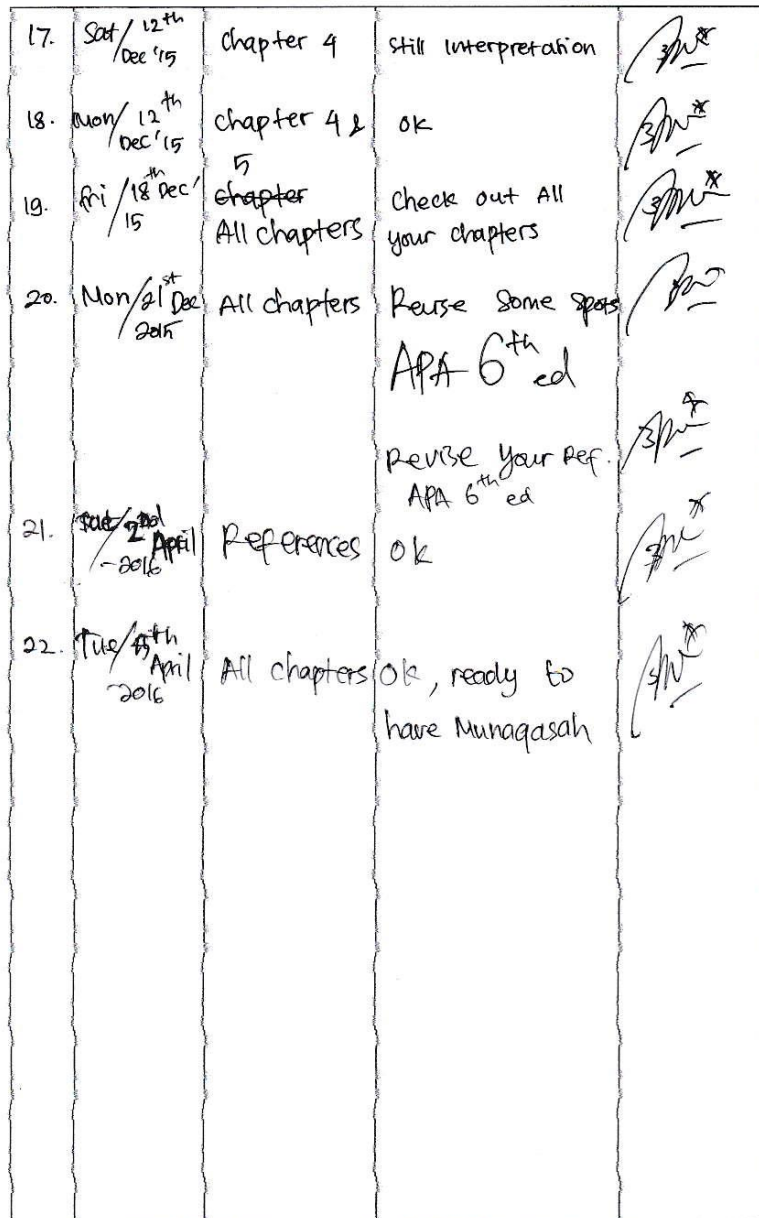 17. Sat/12th Dec '15 chapter 4 still interpretation
18. Mon/12th Dec '15 chapter 4 & 5 ok
19. fri/18th Dec' 15 chapter All chapters Check out All your chapters
20. Mon/21st Dec 2015 All chapters Revise Some spots
APA 6th ed
Revise Your Ref.
APA 6th ed
21. Sat/2nd April 2016 References ok
22. Tue/5th April 2016 All chapters Ok, ready to have Munaqasah